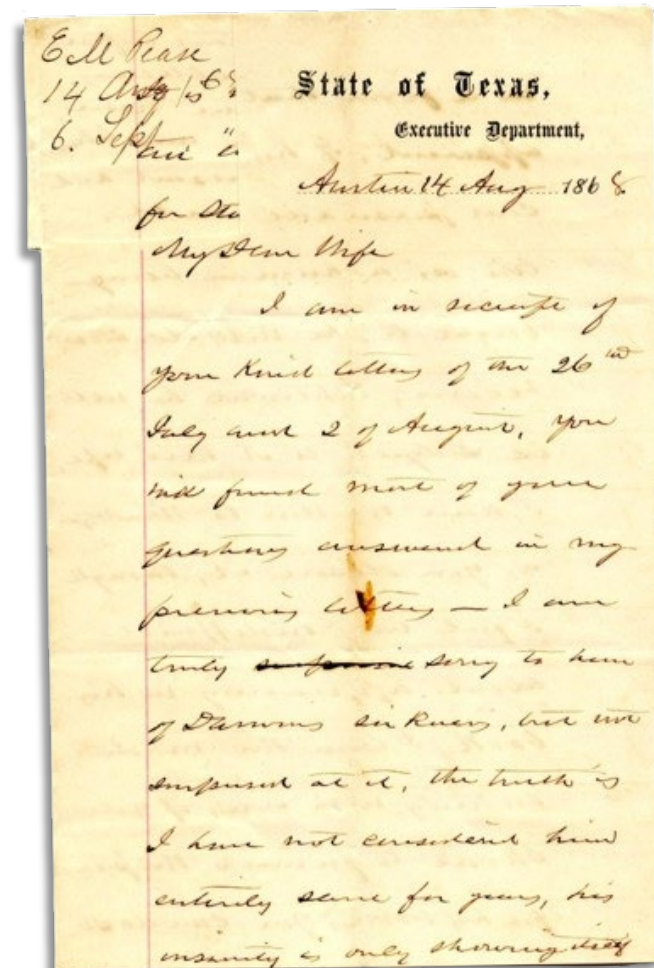 E M Pease
14 Aug / 68
6. Sept
State of Texas,
Executive Department,
Austin 14 Aug 1868.
for
My Dear Wife
I am in receipt of
your kind letters of the 26th
July and 2 of August, you
will find most of your
questions answered in my
previous letters — I am
truly surprised sorry to hear
of sickness, but not
surprised at it, the truth is
I have not considered him
entirely sane for years, his
insanity is only showing itself